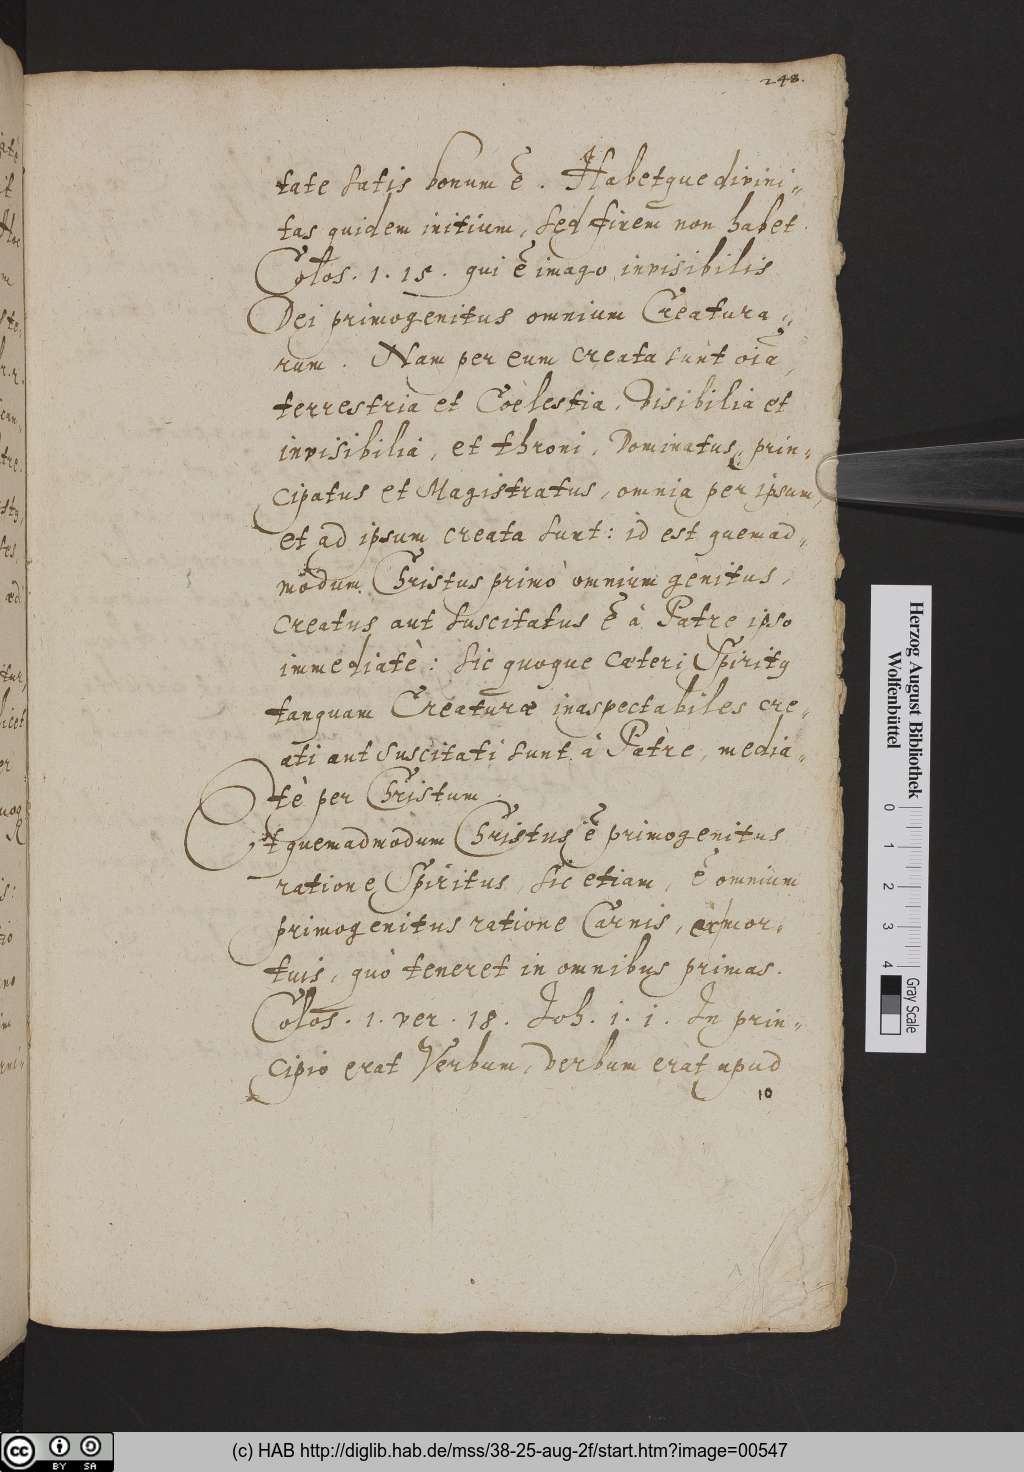 248.
tate satis bonum ẽ. Habetque divini-
tas quidem initium, sed finem non habet.
Colos. 1. 15. qui ẽ imago invisibilis
Dei primogenitus omnium Creatura-
rum. Nam per eum creata sunt oĩa,
terrestria et Coelestia, visibilia et
invisibilia, et throni, Dominatus, prin-
cipatus et Magistratus, omnia per ipsum,
et ad ipsum creata sunt: id est quemad-
modum Christus primò omnium genitus,
creatus aut suscitatus ẽ à Patre ipso
immediatè: sic quoque cæteri Spiritus
tanquam Creaturæ inaspectabiles cre-
ati aut suscitati sunt à Patre, media-
tè per Christum.
Et quemadmodum Christus ẽ primogenitus
ratione Spiritus, sic etiam, ẽ omnium
primogenitus ratione Carnis, ex mor-
tuis, quò teneret in omnibus primas.
Colos. 1. ver. 18. Joh. 1. 1. In prin-
cipio erat Verbum, verbum erat apud
10
Herzog August Bibliothek
Wolfenbüttel
0 1 2 3 4
Gray Scale
cc BY SA
(c) HAB http://diglib.hab.de/mss/38-25-aug-2f/start.htm?image=00547